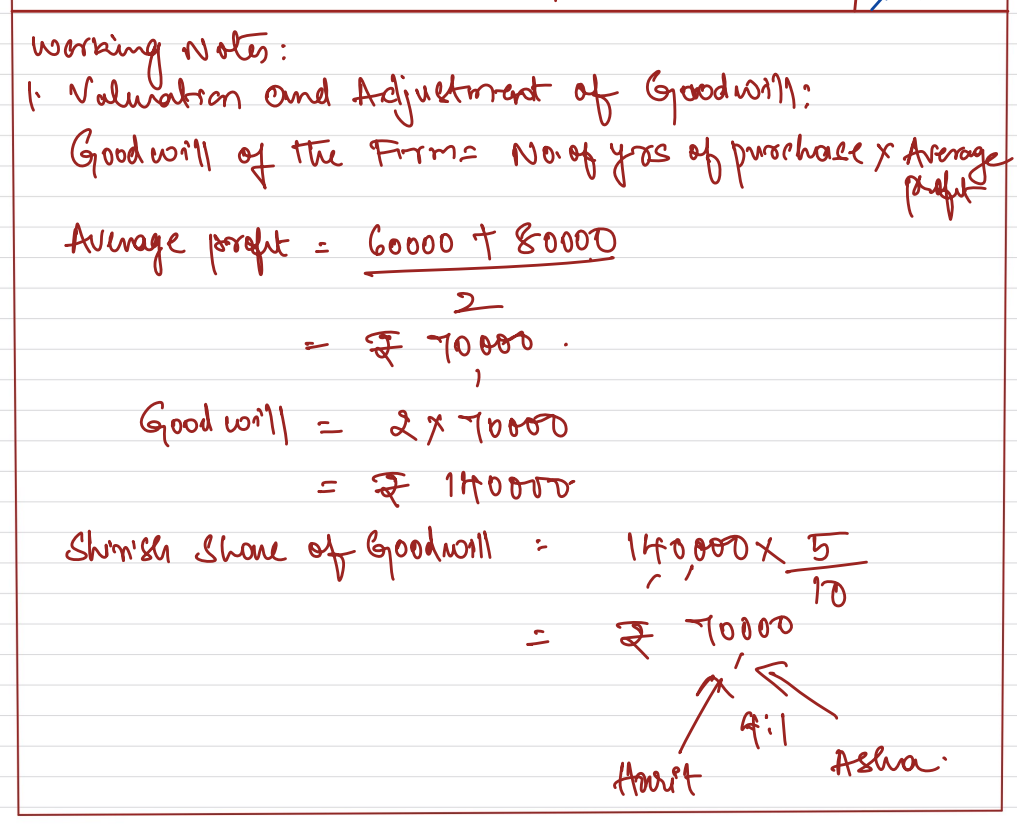 Working Notes:
1. Valuation and Adjustment of Goodwill:
Goodwill of the Firm = No. of yrs of purchase × Average
profit
Average profit = 60000 + 80000
2
= ₹ 70,000.
Goodwill = 2 × 70000
= ₹ 140000
Shirish Share of Goodwill = 1,40,000 × 5
10
= ₹ 70,000
4:1
Harit Asha.